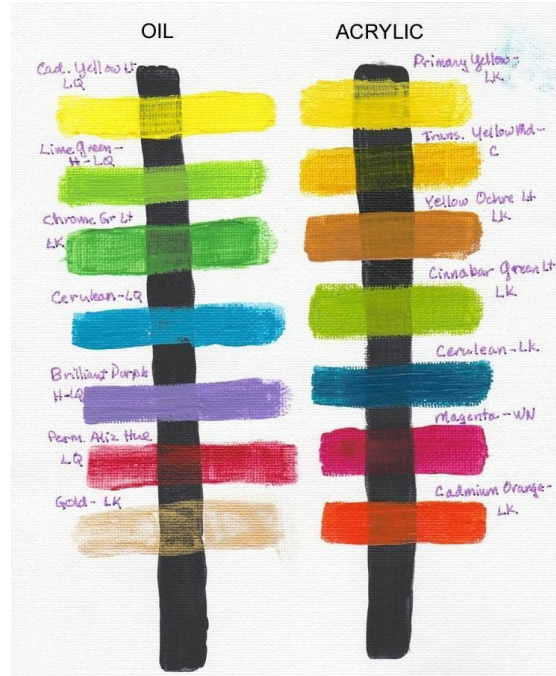 OIL
Cad. Yellow Lt
LQ
Lime green-
H-LQ
Chrome Gr Lt
LK
Cerulean-LQ
Brilliant Purple
H-LQ
Perm. Aliz Hue
LQ
Gold- LK
ACRYLIC
Primary Yellow-
LK
Trans. Yellow Md-
C
Yellow Ochre Lt
LK
Cinnabar Green Lt
LK
Cerulean-LK
Magenta-WN
Cadmium Orange-
LK